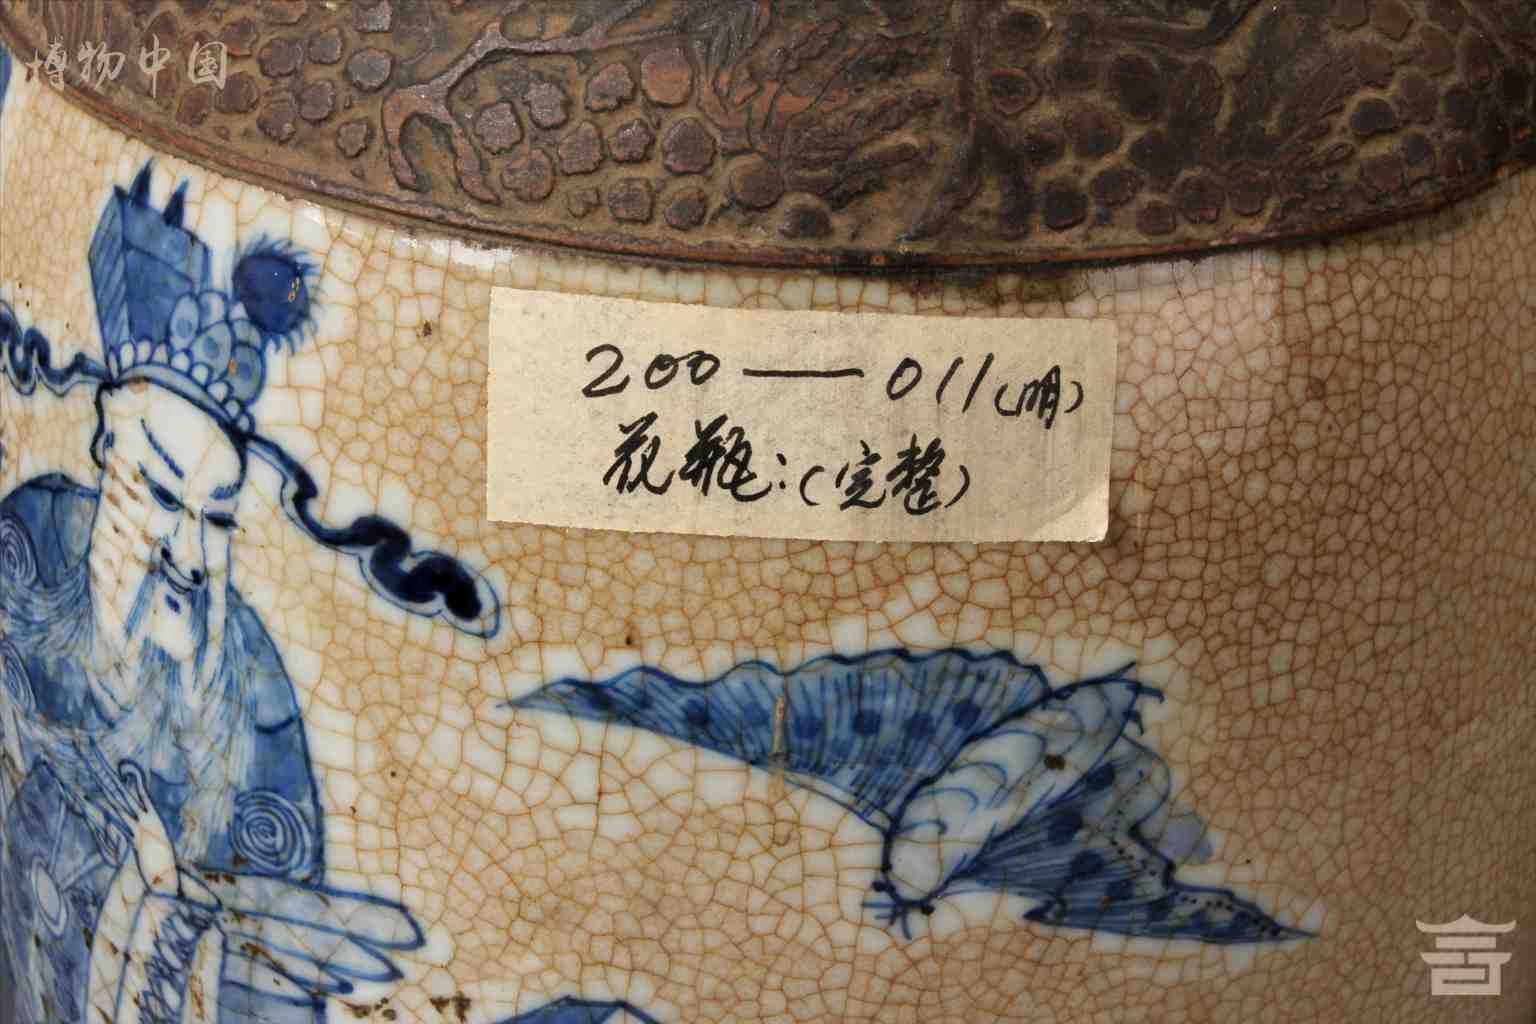 博物中国
200——011(明)
花瓶:(完整)